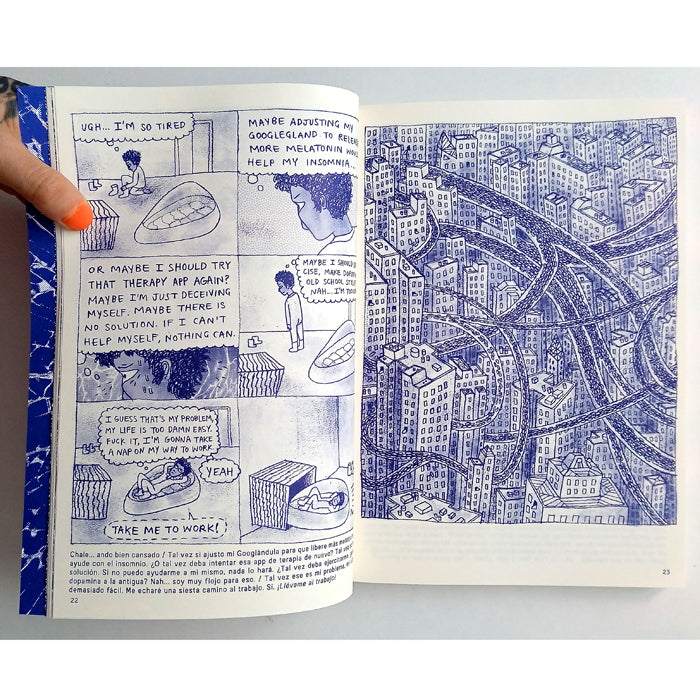 UGH... I'M SO TIRED
MAYBE ADJUSTING MY
GOOGLEGLAND TO
MORE MELATONIN
HELP MY INSOMNIA...
OR MAYBE I SHOULD TRY
THAT THERAPY APP AGAIN?
MAYBE I'M JUST DECEIVING
MYSELF. MAYBE THERE IS
NO SOLUTION. IF I CAN'T
HELP MYSELF, NOTHING CAN.
MAYBE I SHOULD
CISE, MAKE
OLD SCHOOL
NAH... I'M
I GUESS THAT'S MY PROBLEM,
MY LIFE IS TOO DAMN EASY.
FUCK IT, I'M GONNA TAKE
A NAP ON MY WAY TO WORK
YEAH
TAKE ME TO WORK!
Chale... ando bien cansado / Tal vez si ajusto mi Googlándula para que libere más
ayude con el insomnio. ¿O tal vez deba intentar esa app de terapia de nuevo? Tal vez
solución. Si no puedo ayudarme a mí mismo, nada lo hará. ¿Tal vez deba ejercitarme,
dopamina a la antigua? Nah... soy muy flojo para eso. / Tal vez ese es mi problema,
demasiado fácil. Me echaré una siesta camino al trabajo. Sí. ¡Llévame al trabajo!
22
23